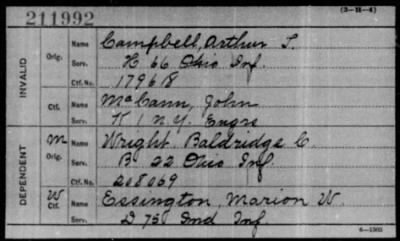 211992
(3-H-4)
INVALID
Orig.
Name Campbell, Arthur T.
Serv. H 66 Ohio Inf.
Ctf. No. 17968
Ctf.
Name McCann, John
Serv. K 1 N.Y. Engrs
DEPENDENT
M
Orig.
Name Wright, Baldridge C.
Serv. B 22 Ohio Inf.
Ctf. No. 208069
W
Ctf.
Name Essington, Marion W.
Serv. D 75 Ind Inf.